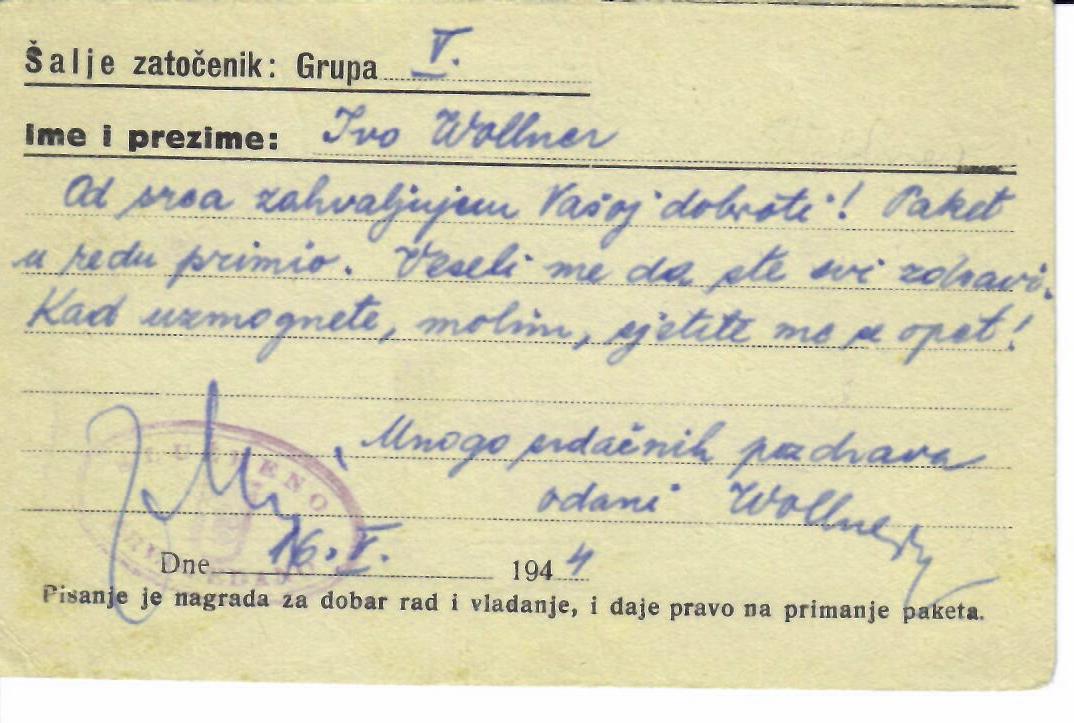 Šalje zatočenik: Grupa V.
Ime i prezime: Ivo Wollner
Od srca zahvaljujem Vašoj dobroti! Paket
u redu primio. Veseli me da ste svi zdravi.
Kad uzmognete, molim, sjetite me se opet!
Mnogo srdačnih pozdrava
odani Wollner
Dne 16. V. 1944
Pisanje je nagrada za dobar rad i vladanje, i daje pravo na primanje paketa.